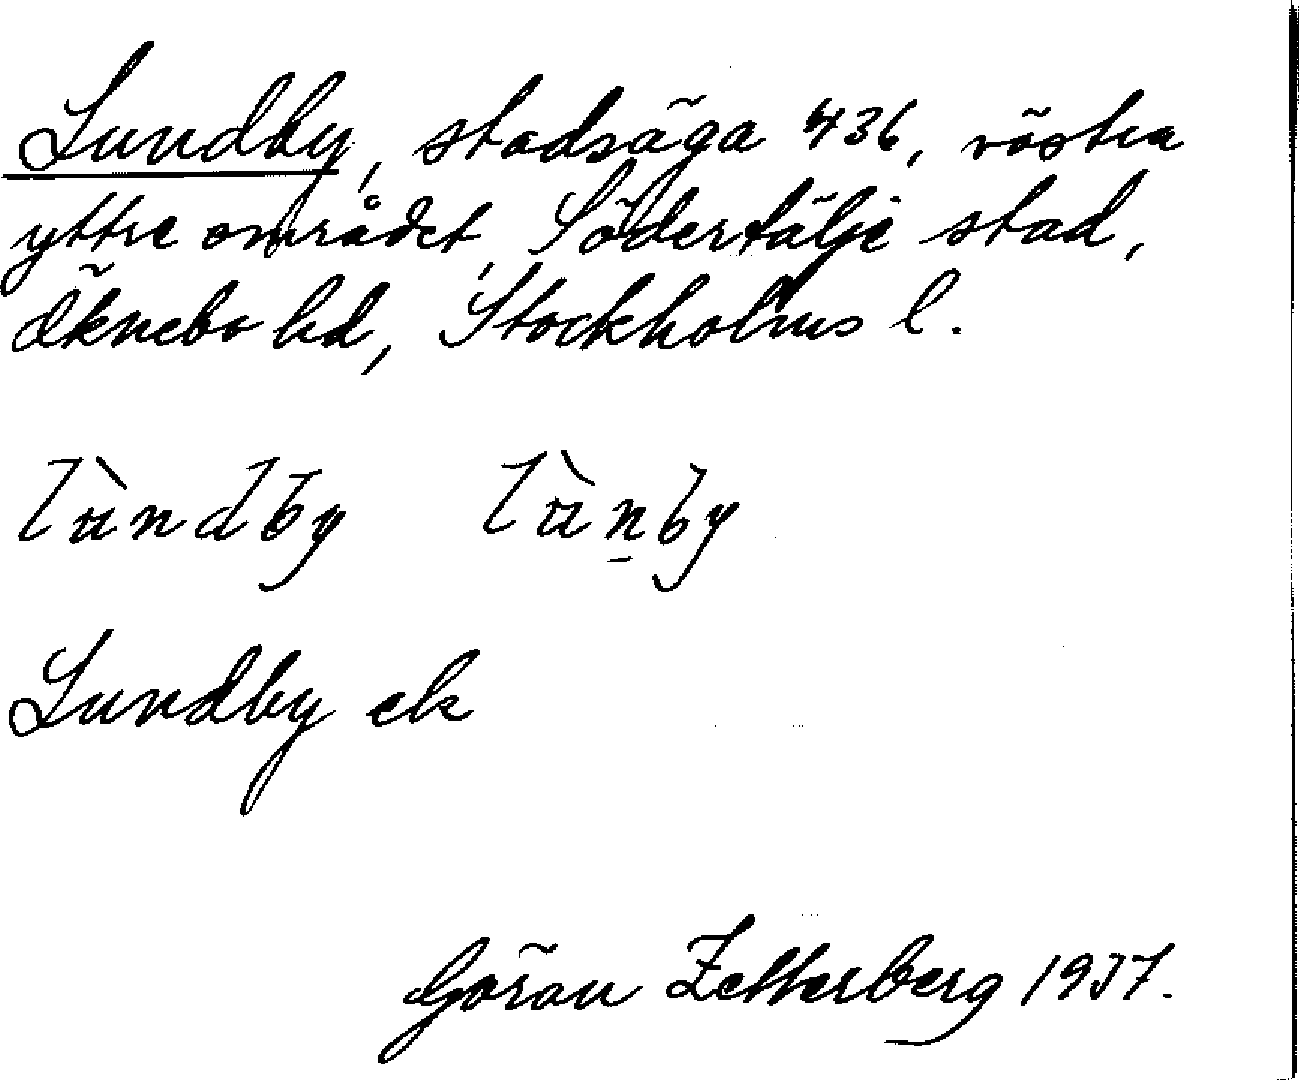 Lundby, stadsäga 436, västra
yttre området, Södertälje stad,
Öknebo hd, Stockholms l.
lùndby lùn̠by
Lundby ek
Göran Zetterberg 1937.